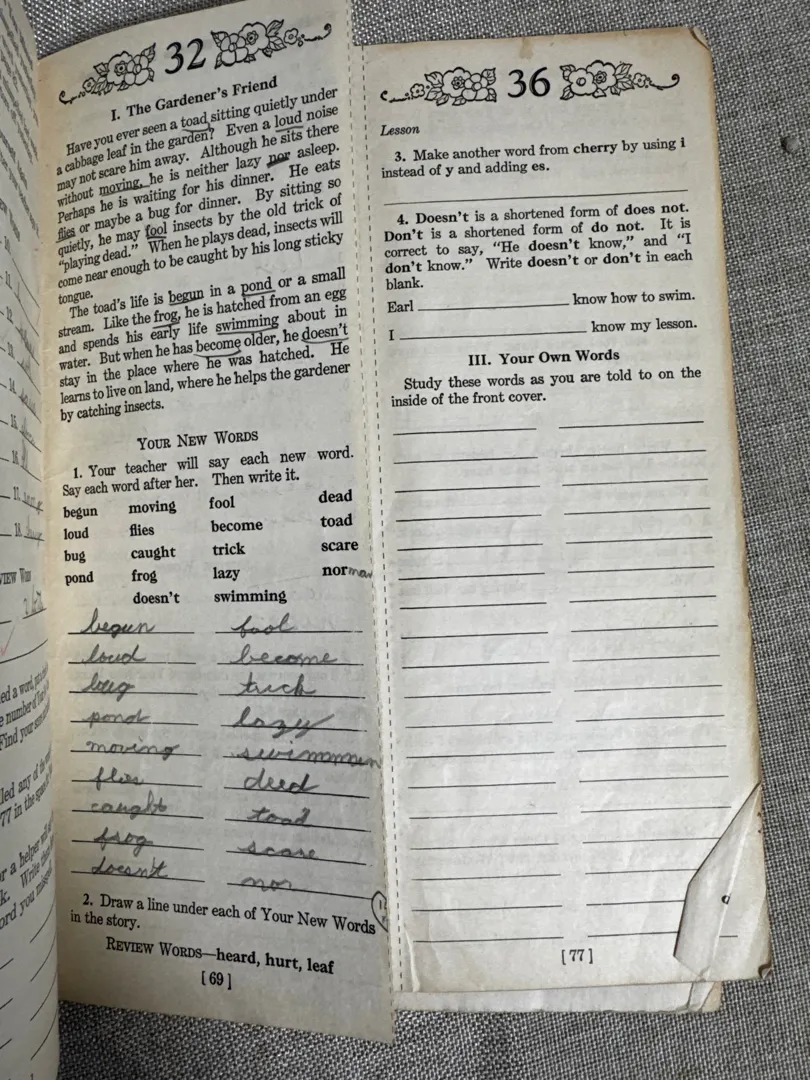 32
I. The Gardener's Friend
Have you ever seen a toad sitting quietly under
a cabbage leaf in the garden? Even a loud noise
may not scare him away. Although he sits there
without moving, he is neither lazy nor asleep.
Perhaps he is waiting for his dinner. He eats
flies or maybe a bug for dinner. By sitting so
quietly, he may fool insects by the old trick of
"playing dead." When he plays dead, insects will
come near enough to be caught by his long sticky
tongue.
The toad's life is begun in a pond or a small
stream. Like the frog, he is hatched from an egg
and spends his early life swimming about in
water. But when he has become older, he doesn't
stay in the place where he was hatched. He
learns to live on land, where he helps the gardener
by catching insects.
YOUR NEW WORDS
1. Your teacher will say each new word.
Say each word after her. Then write it.
begun moving fool dead
loud flies become toad
bug caught trick scare
pond frog lazy nor
doesn't swimming
begun fool
loud become
bug trick
pond lazy
moving swimmen
flies deed
caught toad
frog scare
doesn't nor
2. Draw a line under each of Your New Words
in the story.
REVIEW WORDS—heard, hurt, leaf
[69]
36
Lesson
3. Make another word from cherry by using i
instead of y and adding es.
4. Doesn't is a shortened form of does not.
Don't is a shortened form of do not. It is
correct to say, "He doesn't know," and "I
don't know." Write doesn't or don't in each
blank.
Earl know how to swim.
I know my lesson.
III. Your Own Words
Study these words as you are told to on the
inside of the front cover.
[77]